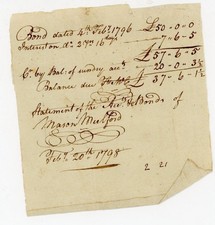 Bond dated 4th Feby. 1796 £50-0-0
Interest on do. 2 Yrs 16 7-6-5
£57-6-5
Cr. by Bal: of sundry accts 20-0-3½
Balance due £37-6-1½
Statement of the Acct. & Bond of
Mason Mulford
Feby. 20th 1798
2 21